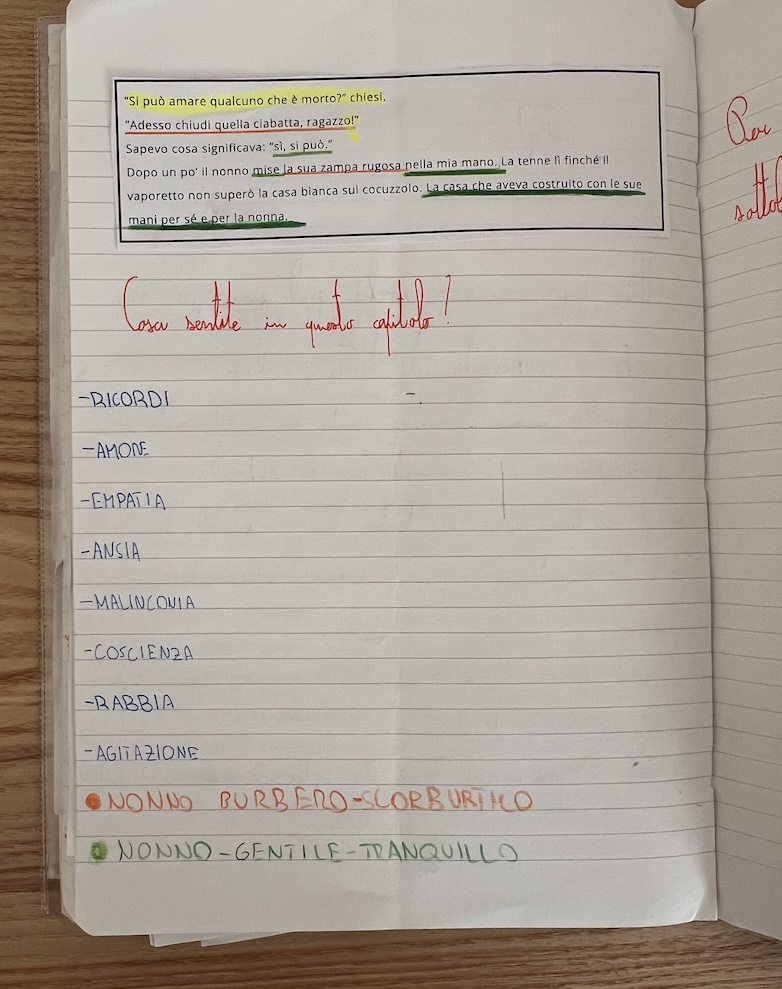 "Si può amare qualcuno che è morto?" chiesi.
"Adesso chiudi quella ciabatta, ragazzo!"
Sapevo cosa significava: "sì, si può."
Dopo un po' il nonno mise la sua zampa rugosa nella mia mano. La tenne lì finché il
vaporetto non superò la casa bianca sul cocuzzolo. La casa che aveva costruito con le sue
mani per sé e per la nonna.
Cosa sentite in questo capitolo?
-RICORDI
-.
-AMORE
-EMPATIA
-ANSIA
-MALINCONIA
-COSCIENZA
-RABBIA
-AGITAZIONE
NONNO BURBERO-SCORBUTICO
NONNO-GENTILE-TRANQUILLO
Per